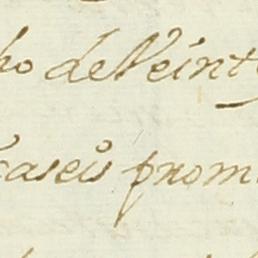 ho de Veint
caseis prom